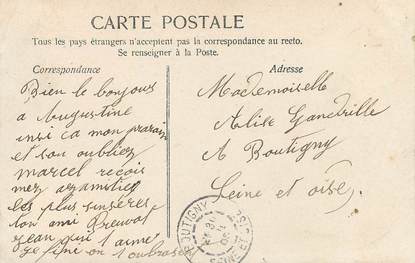 CARTE POSTALE
Tous les pays étrangers n'acceptent pas la correspondance au recto.
Se renseigner à la Poste.
Correspondance
Bien le bonjour
a Augustine
insi ca mon parain
et son oubliez
marcel reçois
mez azamitiez
les plus sinsères
ton ami Prevost
jean qui t'aime
je fini on t'enbrasen
Adresse
Mademoiselle
Alise
A Boutigny
Seine et oise
BOUTIGNY
SEINE ET